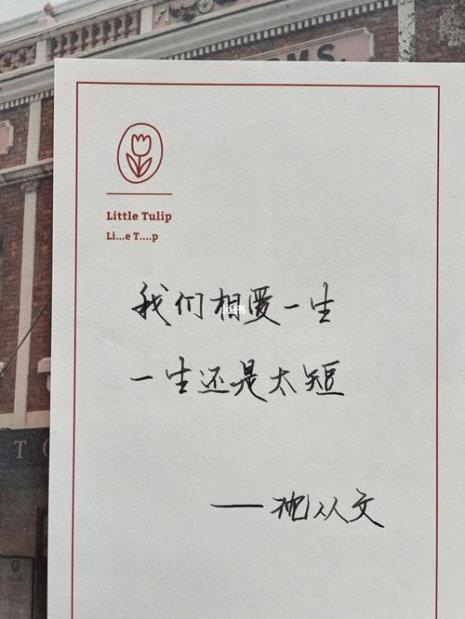 MS.
Little Tulip
Li...e T....p
我们相爱一生
一生还是太短
——沈从文